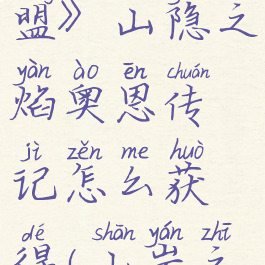 盟》山隐之
yàn ào ēn chuán
焰奥恩传
jì zěn me huò
记怎么获
dé shān yán zhī
得(山岩之